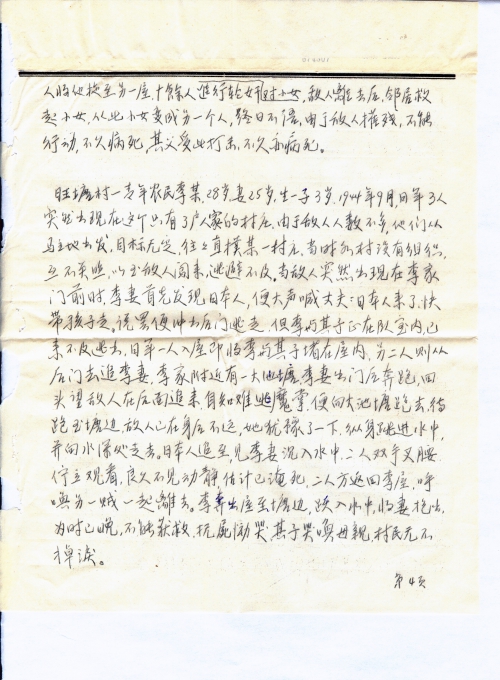 人将他按至另一屋,十余人进行轮奸对小女,敌人离去后,邻居救
起小女,从此小女变成另一个人,终日不语,由于敌人摧残,不能
行动,不久病死,其父受此打击,不久亦病死。
旺塘村一青年农民李某,28岁,妻25岁,生一子3岁,1944年9月,日军3人
突然出现在这个只有3户人家的村庄,由于敌人人数不多,他们从
马主地出发,目标无定,往往直扑某一村庄,当时各村没有组织,
互不关照,以至敌人闯来,逃避不及。当敌人突然出现在李家
门前时,李妻首先发现日本人,便大声喊丈夫:日本人来了,快
带孩子走,说罢便冲出后门逃走,但李与其子正在卧室内,已
来不及逃去,日军一人入屋即将李与其子堵在屋内,另二人则从
后门去追李妻,李家附近有一大池塘,李妻出门后奔跑,回
头望敌人在后面追来,自知难逃魔掌,便向大池塘跑去,待
跑至塘边,敌人已在身后不远,她犹豫了一下,纵身跳进水中,
并向水深处走去,日本人追至,见李妻沉入水中,二人双手叉腰
伫立观看,良久不见动静,估计已淹死,二人方返回李屋,呼
唤另一贼一起离去。李奔出屋至塘边,跃入水中,将妻抱出,
为时已晚,不能获救,抚尸恸哭,其子哭唤母亲,村民无不
掉泪。
第4页